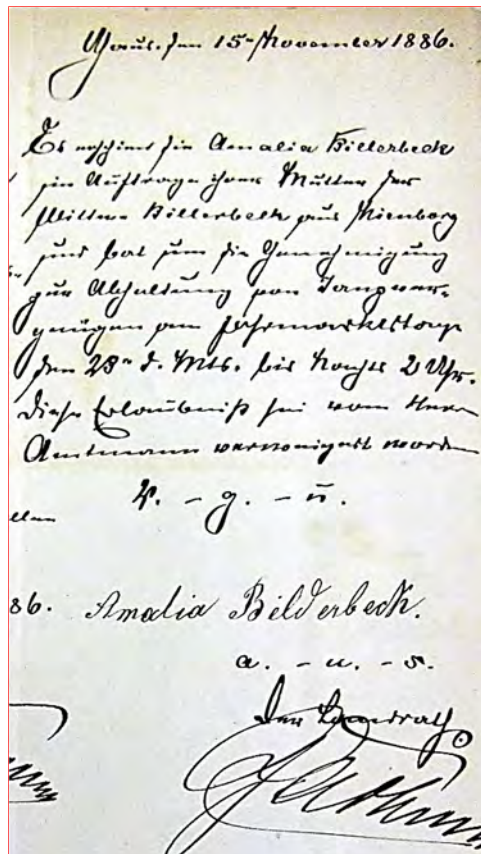 Ahaus, den 15ⁿ November 1886.
Es erscheint die Amalia Billerbeck
im Auftrage ihrer Mutter der
Wittwe Billerbeck aus Nienborg
und bat um die Genehmigung
zur Abhaltung von Tanzver-
gnügen am Jahrmarktstage
den 23ⁿ d. Mts. bis Nachts 2 Uhr.
Diese Erlaubniß sei vom Herrn
Amtmann verweigert worden
V. - g. - u.
llen
86. Amalia Bilderbeck.
a. - u. - s.
Der Landrath